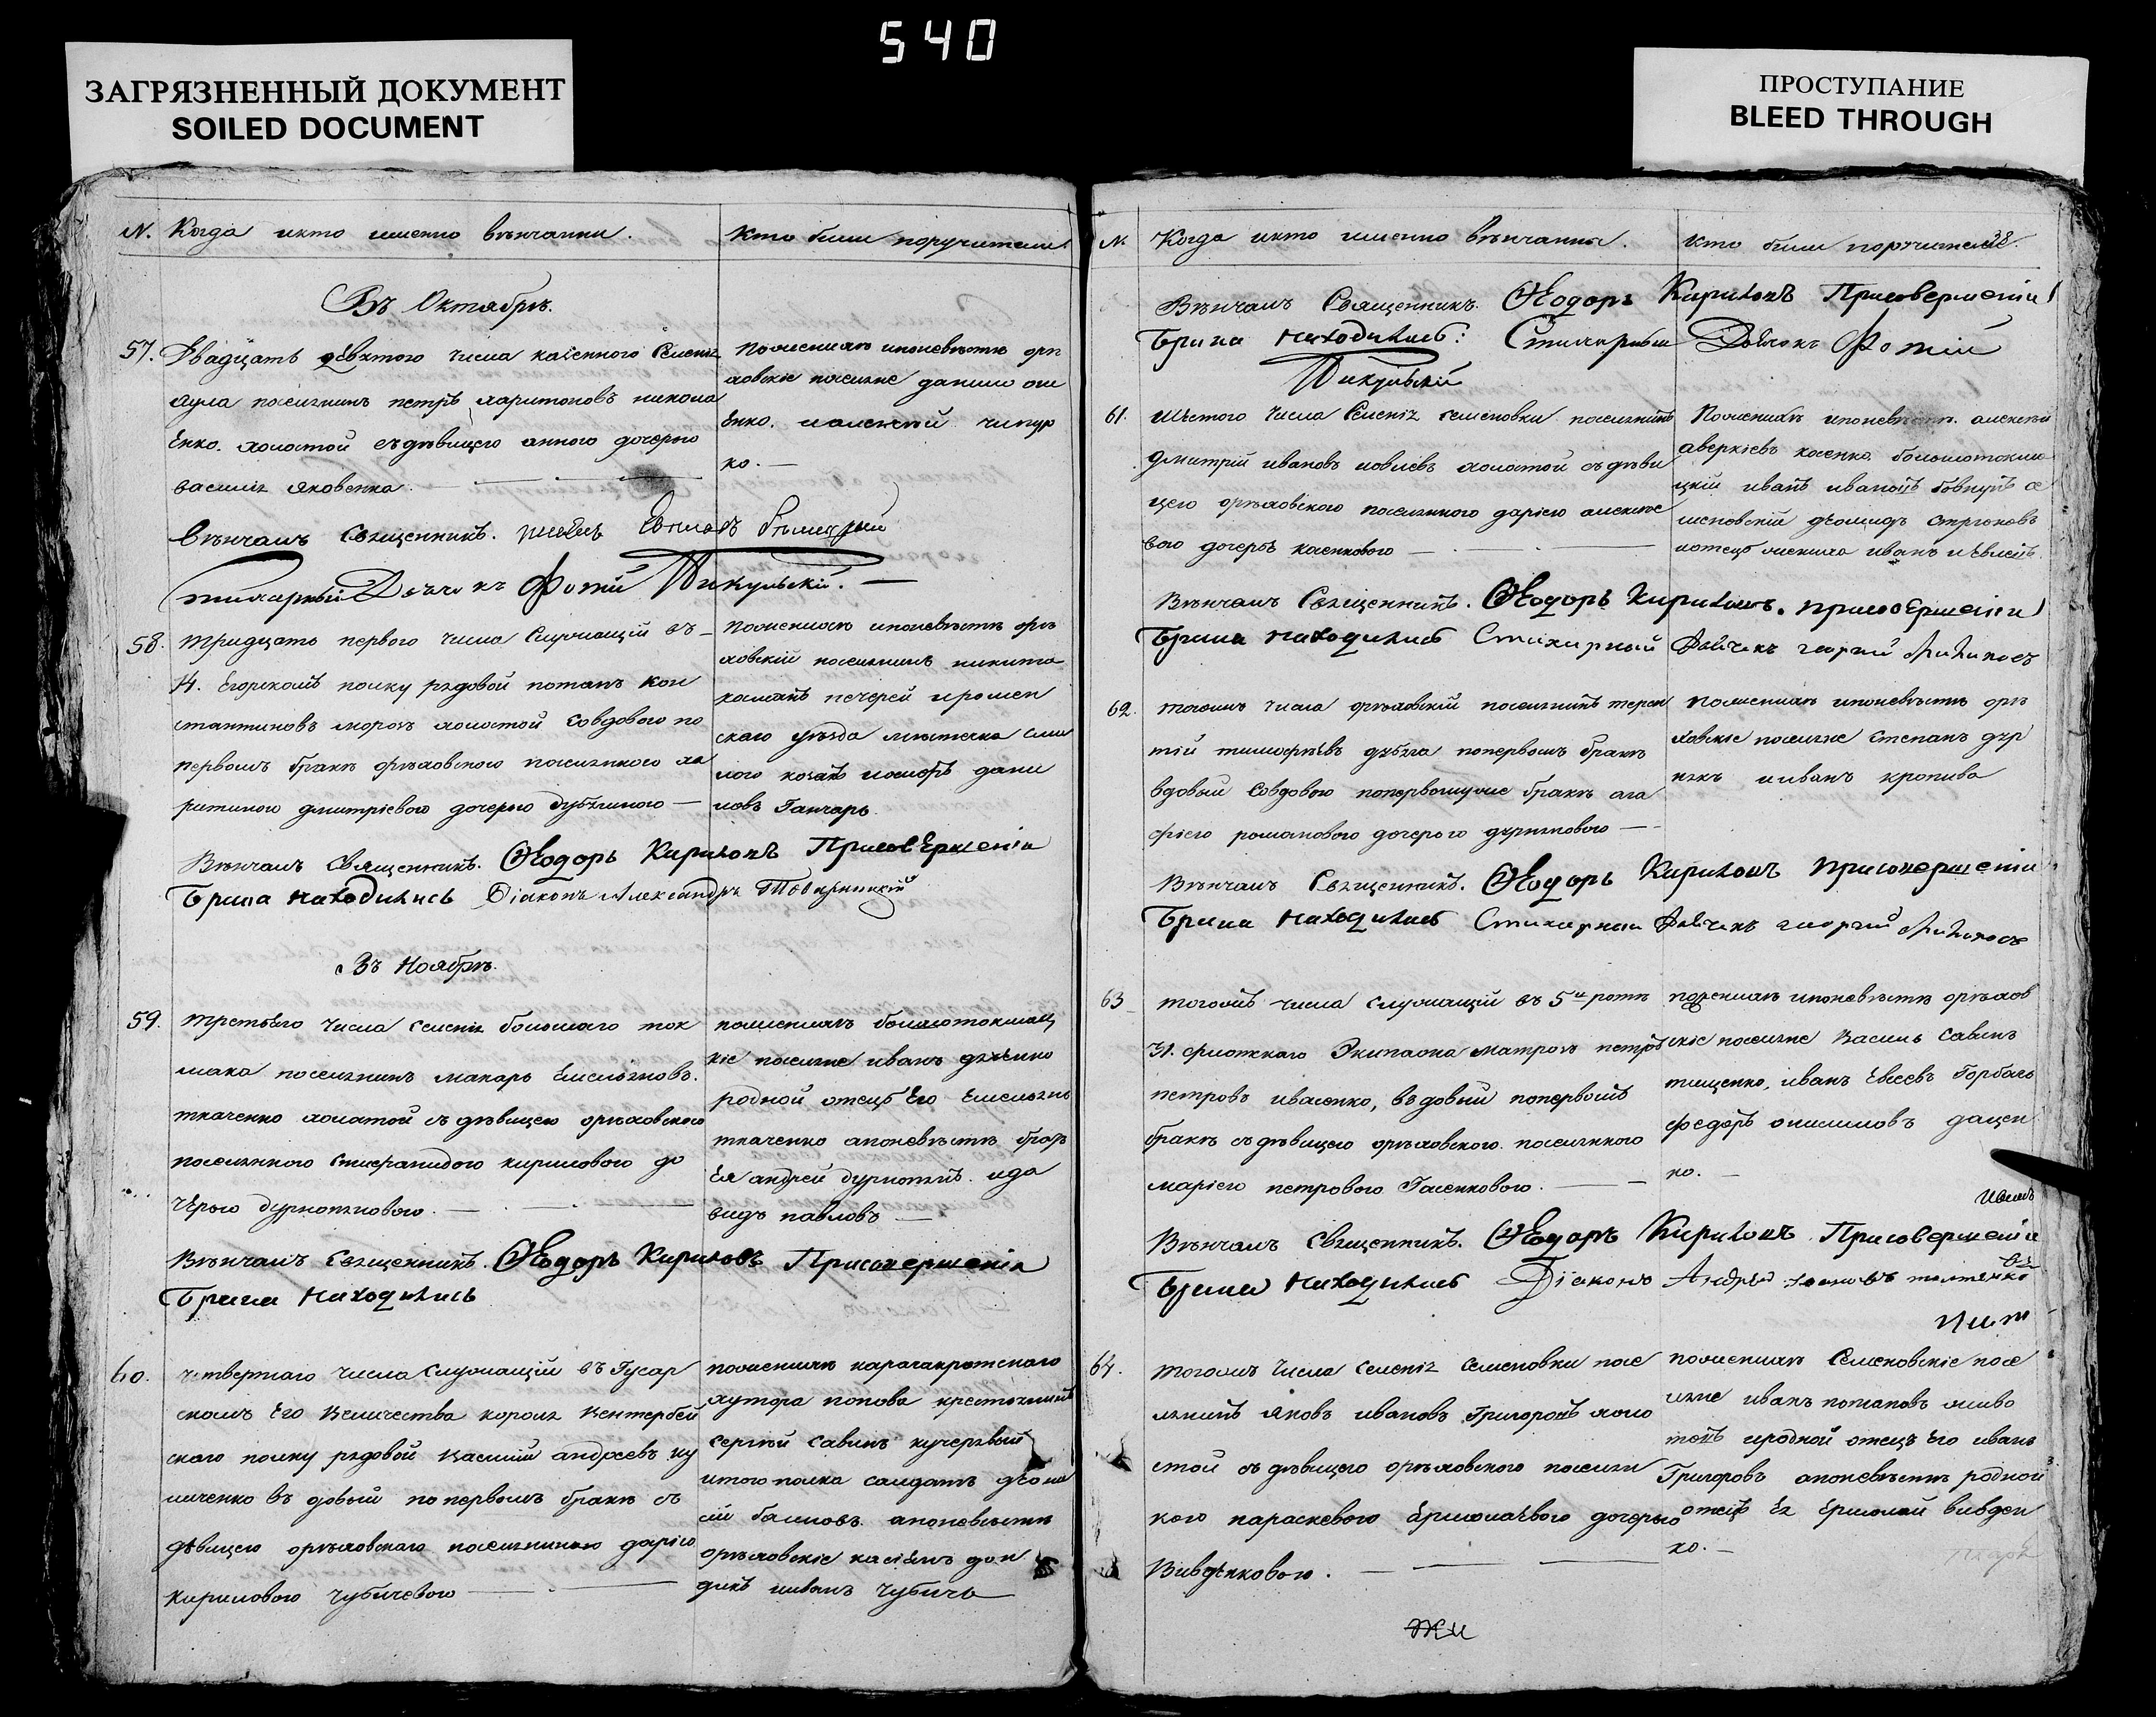 540
ЗАГРЯЗНЕННЫЙ ДОКУМЕНТ
SOILED DOCUMENT
ПРОСТУПАНИЕ
BLEED THROUGH
N. Когда икто именно внѣчанни.
Кто были поручители
Въ Октябрѣ.
57. Двадцать девятого числа казенного Селенія
поселянинъ петръ харитоновъ никола
Енко. холостой съдѣвицею анною дочерью
василія яковенка.
поженихѣ иповевѣстѣ орѣ
ховскіе поселяне данило
Енко.
ко.
внѣчалъ Священникъ.
стихарный Дьячекъ Фотій Пикульскій.
58. тридцать первого числа Служащій въ
14. Егорскомъ полку рядовой потапъ кон
стантиновъ морозъ холостой совдовою по
первомъ бракѣ орѣховского поселянкою ха
ритиною дмитріевою дочерью дубининою
поженихѣ иповевѣстѣ орѣ
ховскій поселянинъ никита
печерей иромен
скаго уѣзда мѣстечка смѣ
лого козакъ іосифъ дани
ловъ Ганчаръ.
Внѣчалъ Священникъ. Ѳеодоръ Кириловъ Присовершеніи
Брака находились Діаконъ Александръ
Въ Ноябрѣ.
59. третьего числа селенія большаго ток
мака поселянинъ макаръ Емельяновъ.
ткаченко холостой съдѣвицею орѣховского
поселянкою стефанидою кириловою до
черью дурнопяновою.
поженихѣ большетокмац
кіе поселяне иванъ
родной отецъ Его Емельянъ
ткаченко аповевѣстѣ братъ
Ея андрей дурнопянъ. ида
видъ павловъ
Внѣчалъ Священникъ. Ѳеодоръ Кириловъ Присовершеніи
Брака находились
60. четвертаго числа служащій въ Гусар
скомъ Его Величества короля Вентербер
ского полку рядовой василій андреевъ ку
личенко въ довый попервомъ бракѣ съ
дѣвицею орѣховскаго поселянкою дарією
кириловою чубичевою
поженихѣ карачакракского
хутора попова крестьянинъ
сергѣй савинъ кучерявый
итого полка солдатъ
сій балиовъ. аповевѣстѣ
орѣховскіе касіянъ дон
дикъ ииванъ Чубичь
N. Когда икто именно внѣчанны.
Кто были поручители.
38.
Внѣчалъ Священникъ. Ѳеодоръ Кириловъ Присовершеніи
Брака находились: Стихарный Дьячекъ Фотій
Пикульскій
61. шестого числа Селенія семеновки поселянинъ
дмитрій ивановъ холостой съдѣви
цею орѣховского поселянкою дарією алексѣе
вою дочерью косенковою
Поженихѣ иповевѣстѣ. алексѣй
аверкіевъ косенко. большетокма
цкій иванъ ивановъ се
меновскій діомидъ
иотецъ жениха иванъ
Внѣчалъ Священникъ. Ѳеодоръ Кириловъ. присовершеніи
Брака находились Стихарный Дьячекъ георгій
62. тогожъ числа орѣховскій поселянинъ терен
тій тимофѣевъ дубяга попервомъ бракѣ
вдовый совдовою попервомуже бракѣ ага
фією романовою дочерью
поженихѣ иповевѣстѣ орѣ
ховскіе поселяне степанъ дур
някъ ииванъ кропива
Внѣчалъ Священникъ. Ѳеодоръ Кириловъ присовершеніи
Брака находились Стихарный Дьячекъ георгій
63 тогожъ числа служащій въ 5й ротѣ
31. флотскаго Экипажа матрозъ петръ
петровъ ивасенко, вдовый попервомъ
бракѣ съдѣвицею орѣховского поселянкою
марією петровою Гасенковою.
поженихѣ иповевѣстѣ орѣхов
скіе поселяне Василь Савинъ
тищенко, иванъ Евсеевъ Горбачь
федоръ онисимовъ дацен
ко.
Внѣчалъ Священникъ. Ѳеодоръ Кириловъ Присовершеніи
Брака находились Діаконъ Андрей
64. тогожъ числа селенія Семеновки посе
лянинъ яковъ ивановъ Григоровъ холо
стой съдѣвицею орѣховского поселян
кою параскевою Ермолаевою дочерью
Вивденковою.
поженихѣ Семеновскіе посе
ляне иванъ потаповъ живо
товъ иродной отецъ Его иванъ
Григоровъ аповевѣстѣ родной
отецъ Ея Ермолай вивден
ко.